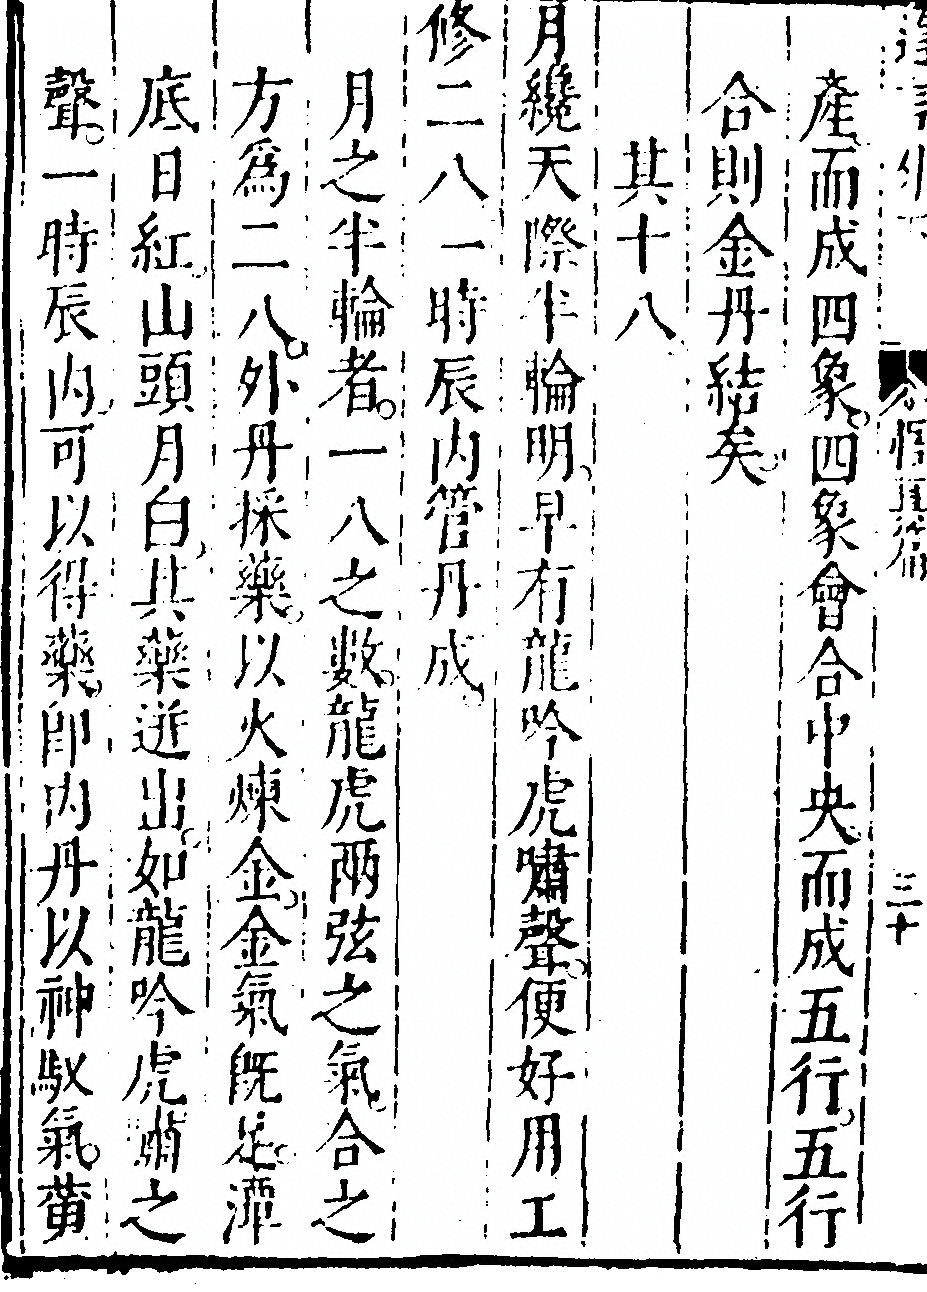 悟真篇
三十
產而成四象四象會合中央而成五行五行
合則金丹結矣
其十八
月纔天際半輪明早有龍吟虎嘯聲便好用工
修二八一時辰內管丹成
月之半輪者一八之數龍虎兩弦之氣合之
方為二八外丹採藥以火煉金金氣既足潭
底日紅山頭月白其藥迸出如龍吟虎嘯之
聲一時辰內可以得藥即內丹以神馭氣黃